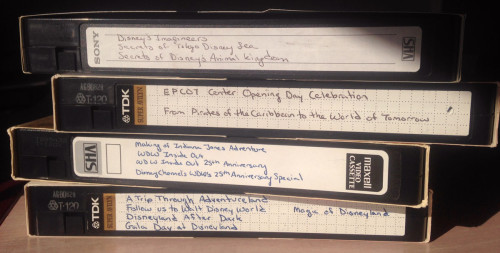 SONY
Disney's Imagineers
Secrets of Tokyo Disney Sea
Secrets of Disney's Animal Kingdom
VHS
TDK
T-120
SUPER AVILYN
EPCOT Center Opening Day Celebration
From Pirates of the Caribbean to the World of Tomorrow
VHS
Making of Indiana Jones Adventure
WDW Inside Out
WDW Inside Out 25th Anniversary
Disney Channels WDW's 25th Anniversary Special
maxell
VIDEO
CASSETTE
TDK
T-120
SUPER AVILYN
A Trip Through Adventureland
Follow us to Walt Disney World
Disneyland After Dark
Gala Day at Disneyland
Magic of Disneyland